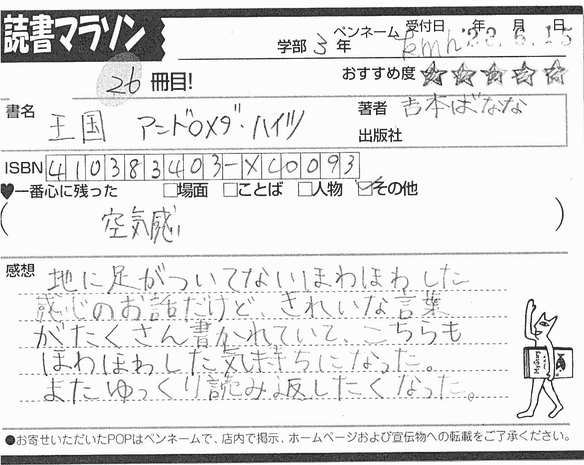 読書マラソン
学部 3 年 ペンネーム kmh 受付日 年 月 日
26 冊目!
おすすめ度 ★★★★★
書名 王国 アンドロメダ・ハイツ
著者 吉本ばなな
出版社
ISBN 410383403-XC0093
♥一番心に残った □場面 □ことば □人物 ☑その他
( 空気感 )
感想 地に足がついてないほわほわした
感じのお話だけど、きれいな言葉
がたくさん書かれていて、こちらも
ほわほわした気持ちになった。
またゆっくり読み返したくなった。
●お寄せいただいたPOPはペンネームで、店内で掲示、ホームページおよび宣伝物への転載をご了承ください。